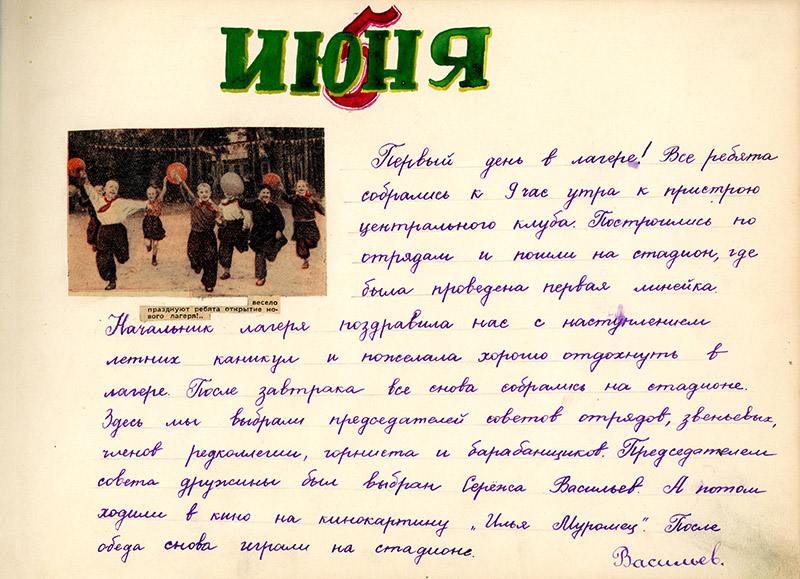 5 ИЮНЯ
Первый день в лагере! Все ребята
собрались к 9 час утра к пристрою
центрального клуба. Построились по
отрядам и пошли на стадион, где
была проведена первая линейка.
весело
празднуют ребята открытие но-
вого лагеря!..
Начальник лагеря поздравила нас с наступлением
летних каникул и пожелала хорошо отдохнуть в
лагере. После завтрака все снова собрались на стадионе.
Здесь мы выбрали председателей советов отрядов, звеньевых,
членов редколлегии, горниста и барабанщиков. Председателем
совета дружины был выбран Серёжа Васильев. А потом
ходили в кино на кинокартину „Илья Муромец". После
обеда снова играли на стадионе.
Васильев.